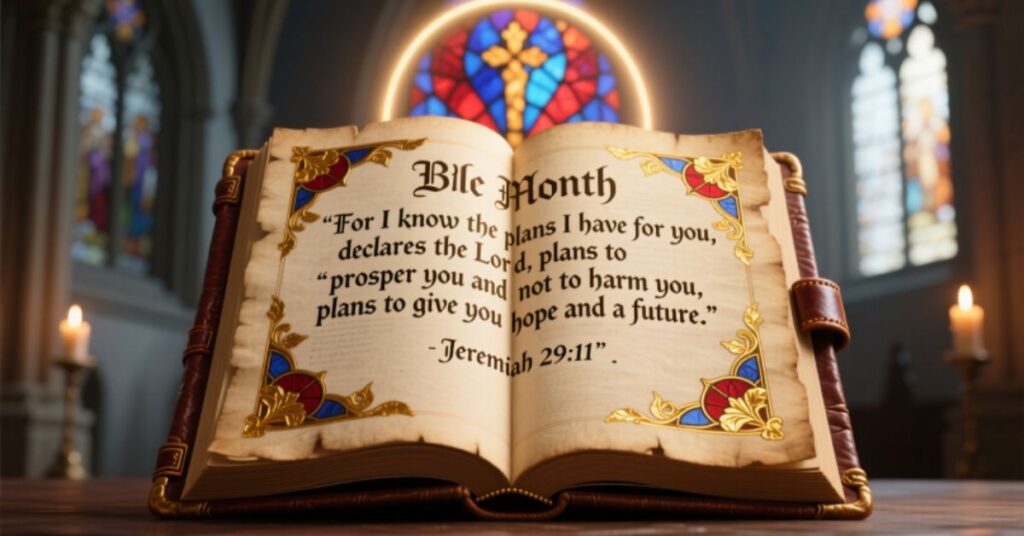 Bile Month
“For I know the plans I have for you,
declares the Lord, plans to
“prosper you and not to harm you,
plans to give you hope and a future.”
- Jeremiah 29:11” .